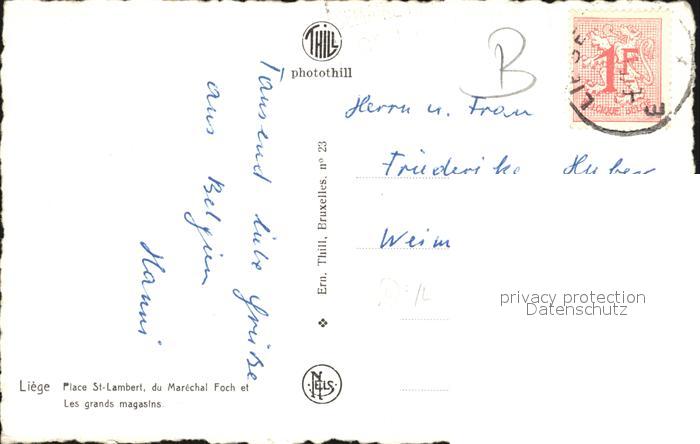 THILL
photothill
B
1F
BELGIQUE BELG
Tausend liebe Grüße
aus Belgien
Hanni
Ern. Thill, Bruxelles. nº 23
Herrn u. Frau
Friederike Huber
Weim
privacy protection
Datenschutz
NELS
Liège Place St-Lambert, du Maréchal Foch et
Les grands magasins.